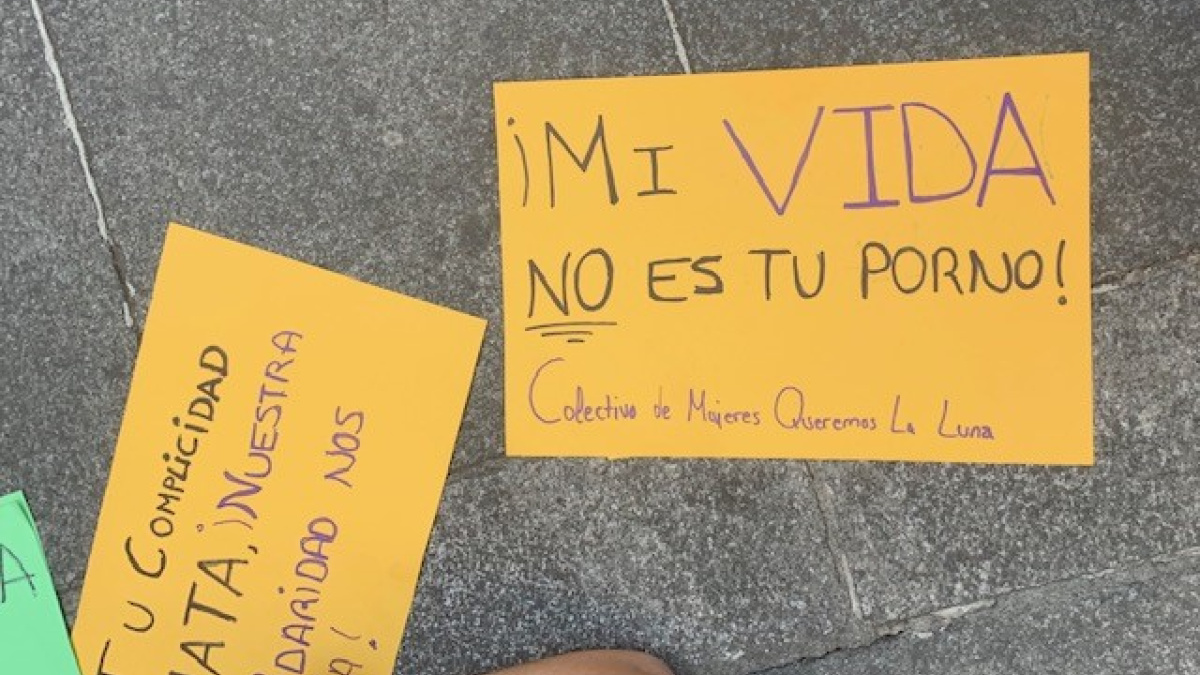 ¡MI VIDA
NO ES TU PORNO!
Colectivo de Mujeres Queremos La Luna
TU COMPLICIDAD
ATA, ¡NUESTRA
DARIDAD NOS
A!
A